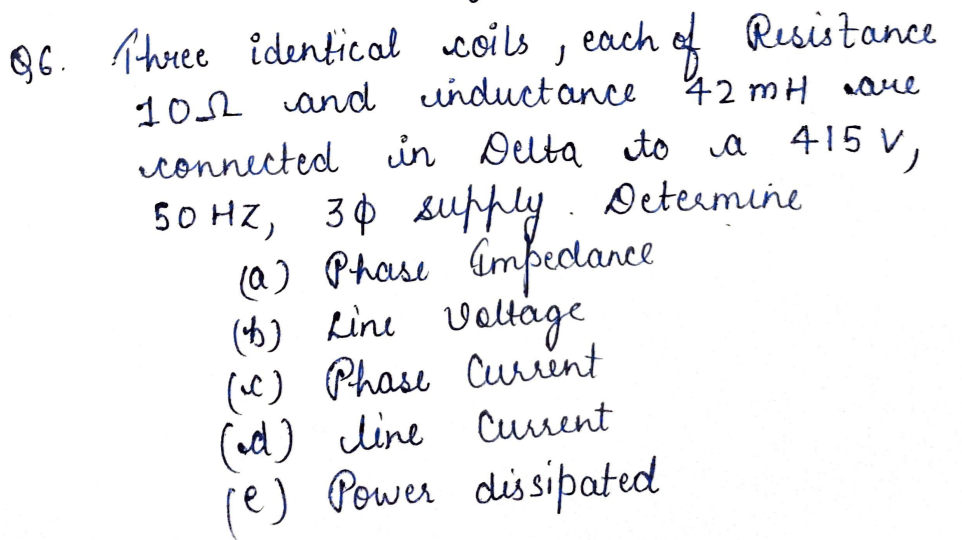 Q6. Three identical coils, each of Resistance
10Ω and inductance 42 mH are
connected in Delta to a 415 V,
50 HZ, 3ϕ supply. Determine
(a) Phase Impedance
(b) Line Voltage
(c) Phase Current
(d) line Current
(e) Power dissipated